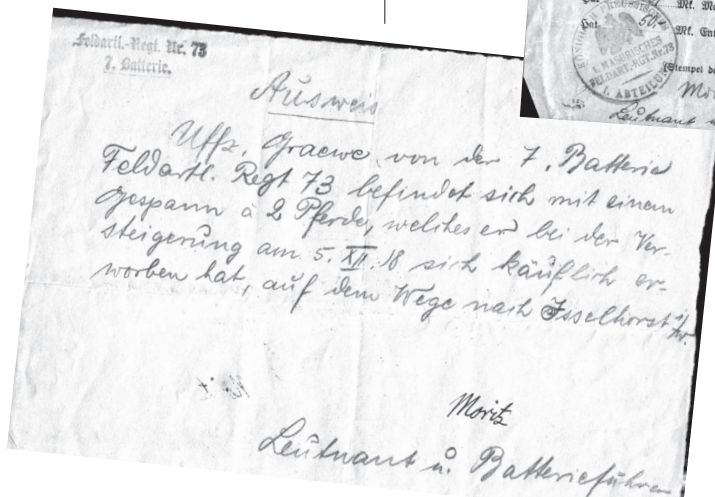 Feldartl.-Regt. Nr. 73
7. Batterie.
Ausweis
Uffz. Graewe, von der 7. Batterie
Feldartl. Regt 73 befindet sich mit einem
Gespann à 2 Pferde, welches er bei der Ver-
steigerung am 5. XII. 18 sich käuflich er-
worben hat, auf dem Wege nach Isselhorst i/W.
Moritz
Leutnant u. Batterieführer
Hat 50 Mk. Ent
1. MASURISCHES
FELDART.-RGT. Nr. 73
I. ABTEILUNG
(Stempel de
Mori
Leutnant u